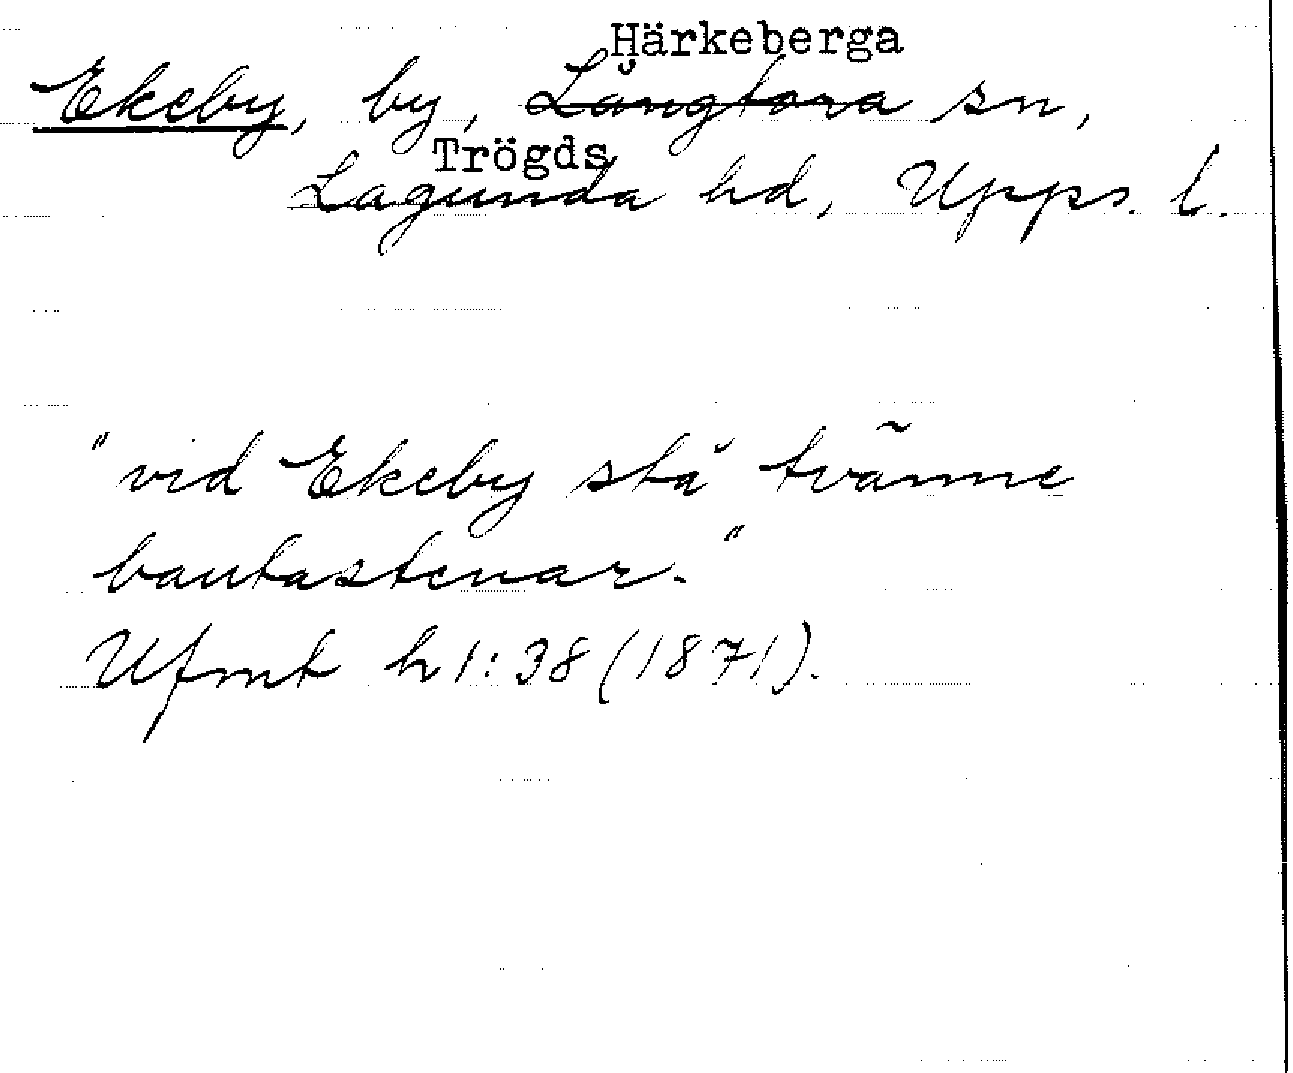 Härkeberga
Ekeby, by, Långtora sn,
Trögds
Lagunda hd, Upps. l.
"vid Ekeby stå tvänne
bautastenar."
Ufmt h 1:38 (1871).